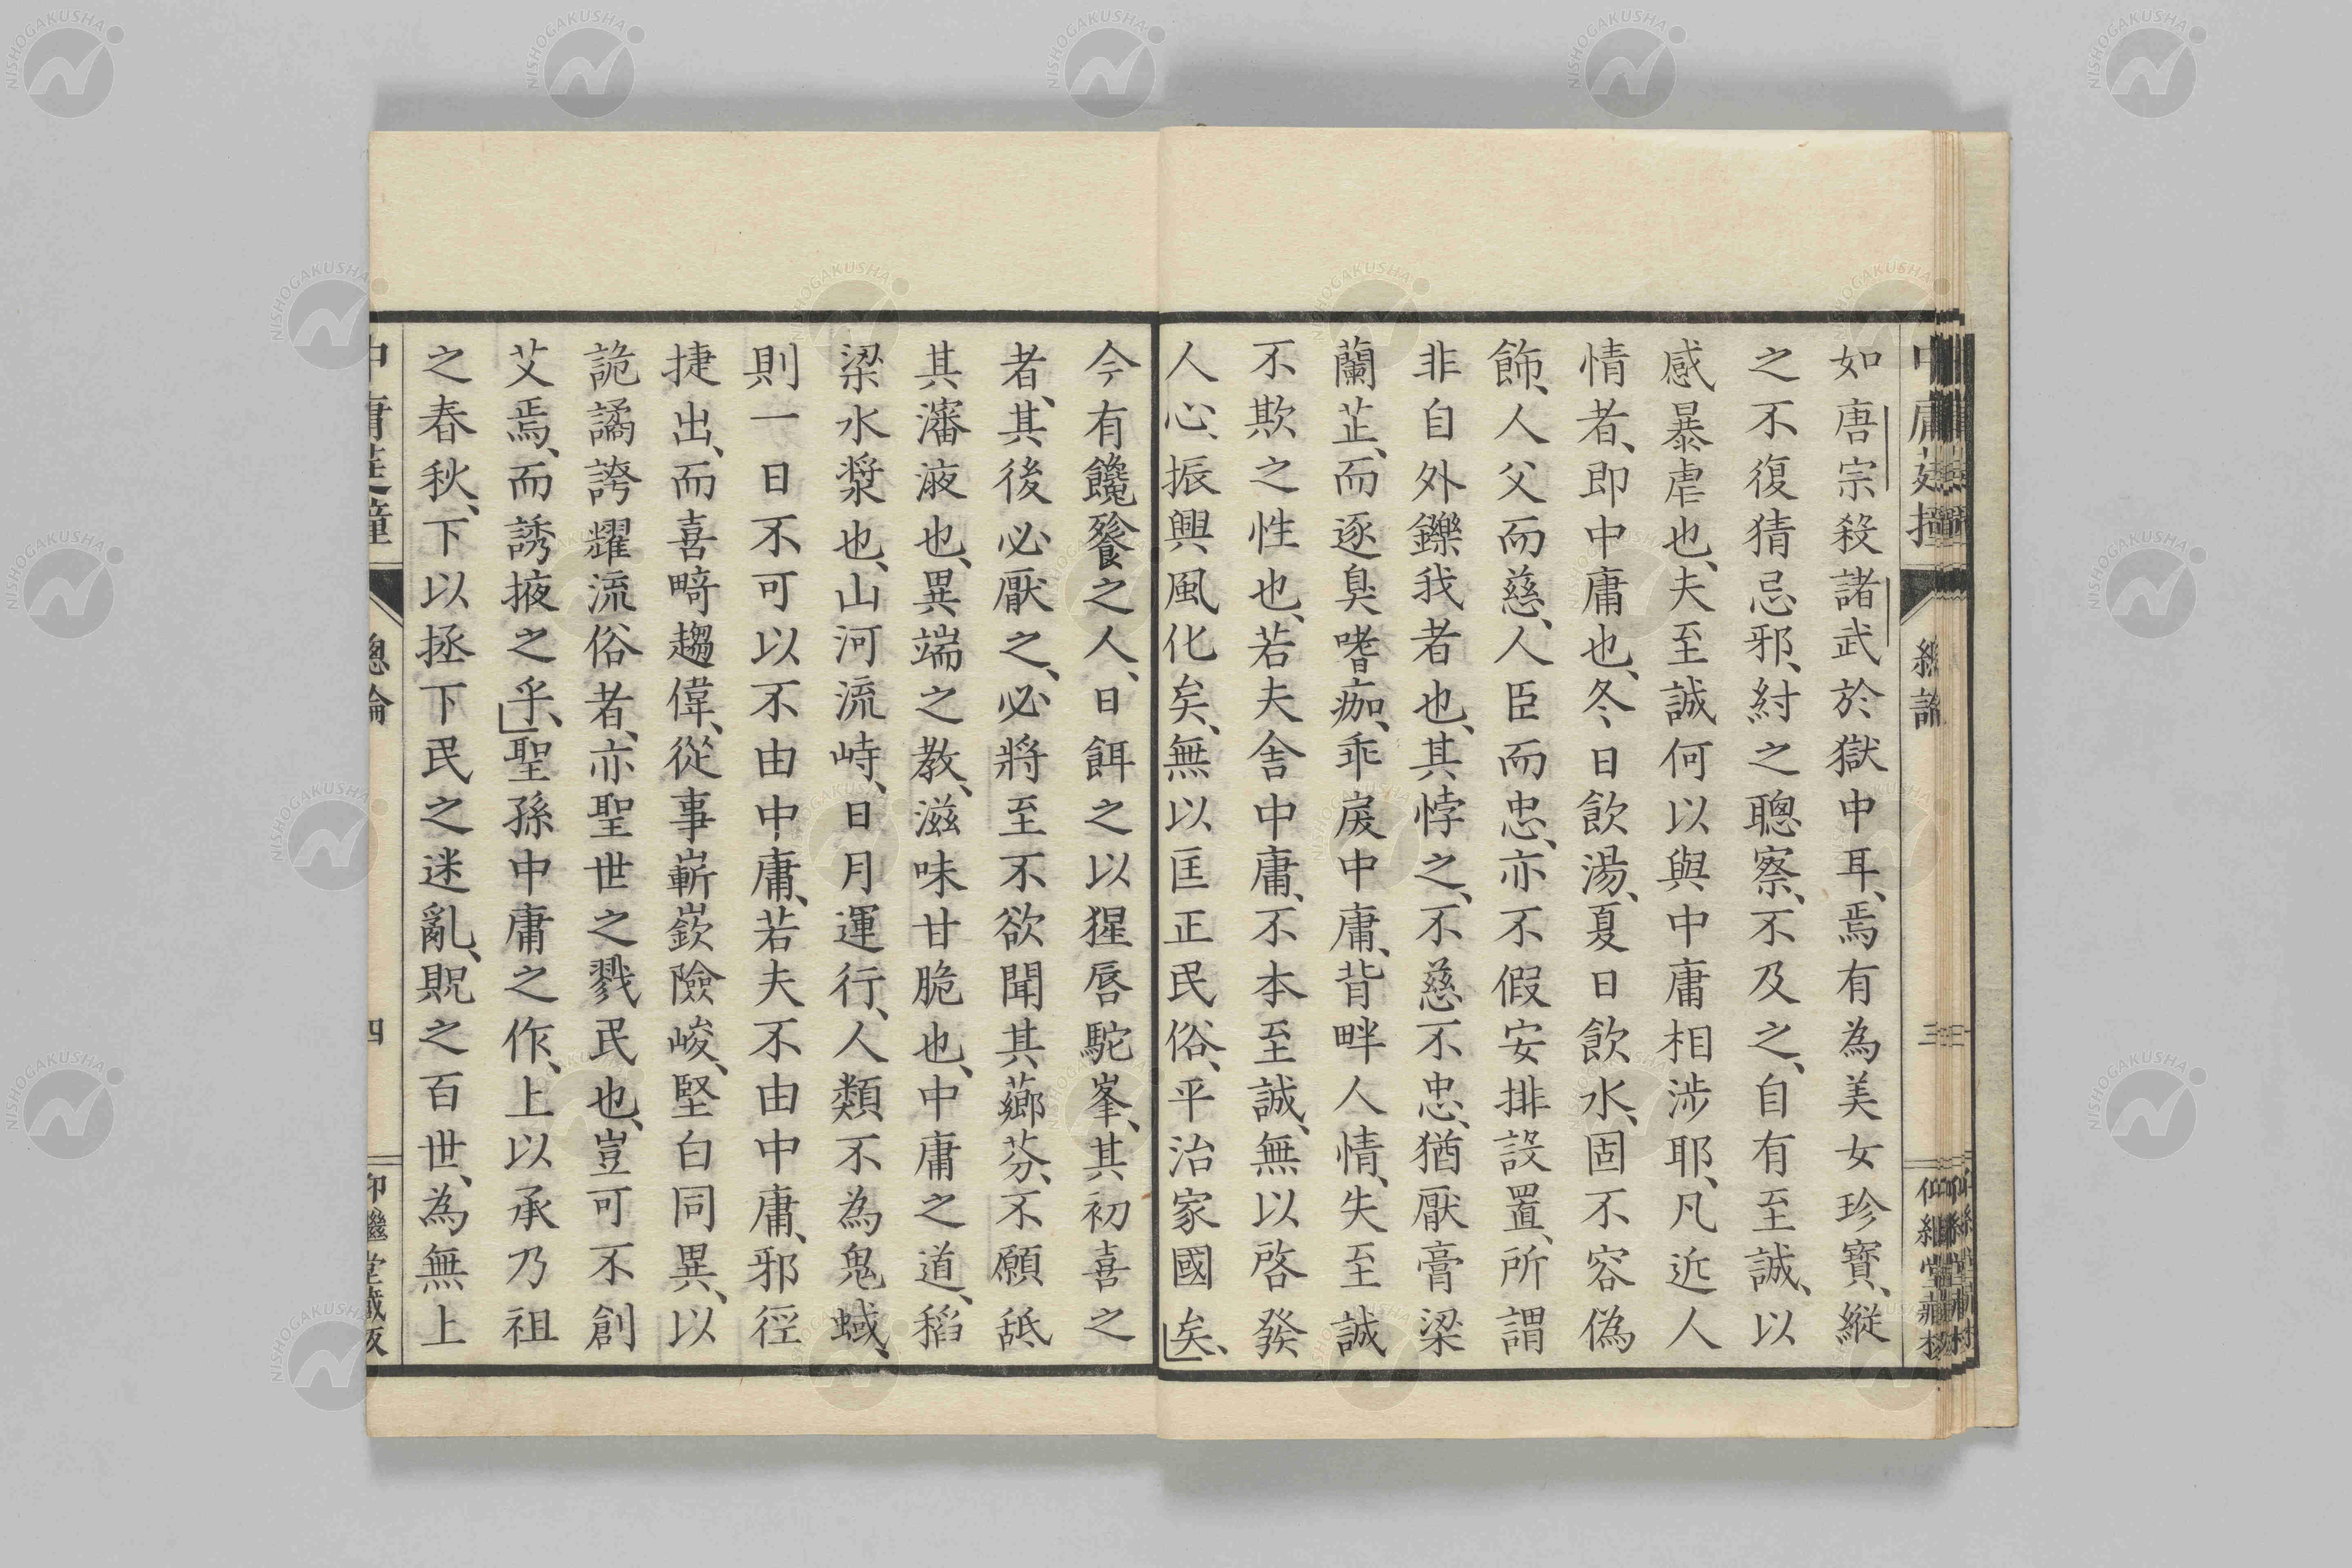 如唐宗殺諸武於獄中耳、焉有為美女珍寳、縦
之不復猜忌邪、紂之聰察、不及之、自有至誠、以
感暴虐也、夫至誠何以與中庸相涉耶、凡近人
情者、即中庸也、冬日飲湯、夏日飲水、固不容偽
飾、人父而慈、人臣而忠、亦不假安排設置、所謂
非自外鑠我者也、其悖之、不慈不忠、猶厭膏梁
蘭芷、而逐臭嗜痂、乖戾中庸、背畔人情、失至誠
不欺之性也、若夫舍中庸、不本至誠、無以啓發
人心、振興風化矣、無以匡正民俗、平治家國矣、
今有饞餮之人、日餌之以猩唇駝峯、其初喜之
者、其後必厭之、必將至不欲聞其薌芬、不願舐
其瀋液也、異端之教、滋味甘脆也、中庸之道、稻
梁水漿也、山河流峙、日月運行、人類不為鬼蜮、
則一日不可以不由中庸、若夫不由中庸、邪徑
捷出、而喜畸趨偉、從事嶄嶔險峻、堅白同異、以
詭譎誇耀流俗者、亦聖世之戮民也、豈可不創
艾焉、而誘掖之乎、聖孫中庸之作、上以承乃祖
之春秋、下以拯下民之迷亂、貺之百世、為無上
中庸莛撞
總論
四
仰繼堂藏版